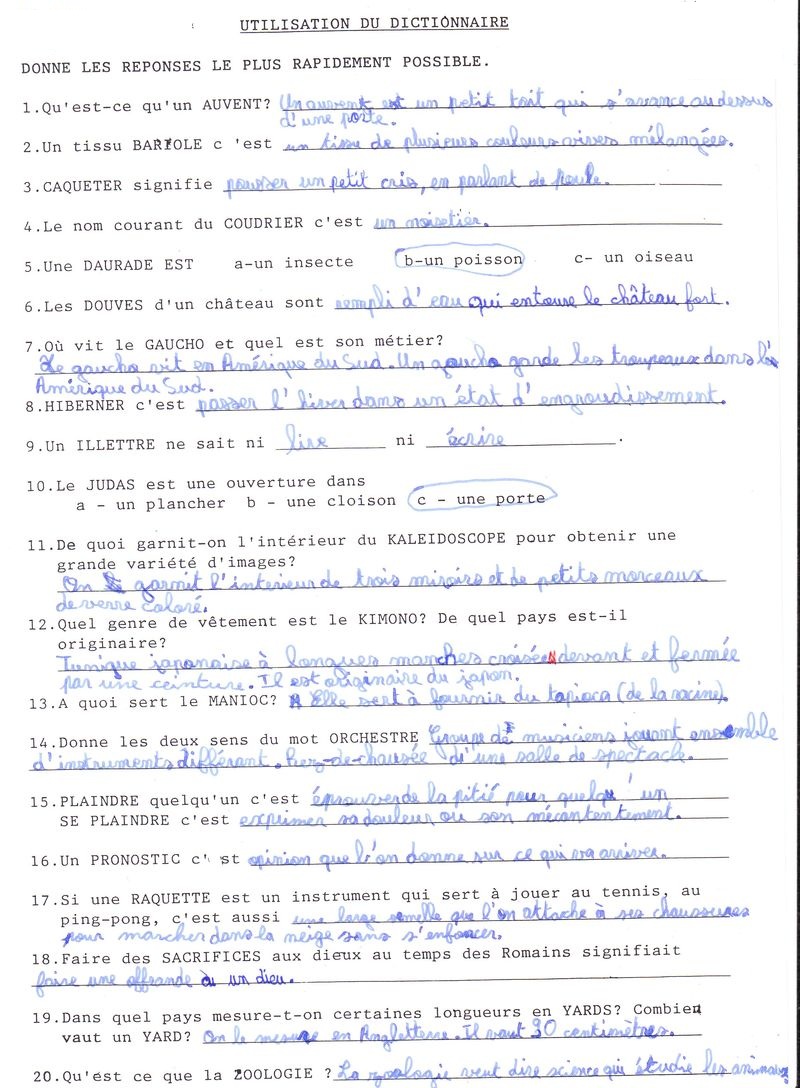 UTILISATION DU DICTIONNAIRE
DONNE LES REPONSES LE PLUS RAPIDEMENT POSSIBLE.
1.Qu'est-ce qu'un AUVENT? Un auvent est un petit toit qui s'avance au dessus
d'une porte.
2.Un tissu BARIOLE c 'est un tissu de plusieurs couleurs vives mélangées.
3.CAQUETER signifie pousser un petit cris, en parlant de poule.
4.Le nom courant du COUDRIER c'est un noisetier.
5.Une DAURADE EST a-un insecte b-un poisson c- un oiseau
6.Les DOUVES d'un château sont rempli d'eau qui entoure le château fort.
7.Où vit le GAUCHO et quel est son métier?
Le gaucho vit en Amérique du Sud. Un gaucho garde les troupeaux dans l'
Amérique du Sud.
8.HIBERNER c'est passer l'hiver dans un état d'engroudissement.
9.Un ILLETTRE ne sait ni lire ni écrire .
10.Le JUDAS est une ouverture dans
a - un plancher b - une cloison c - une porte
11.De quoi garnit-on l'intérieur du KALEIDOSCOPE pour obtenir une
grande variété d'images?
On garnit l'interieur de trois miroirs et de petits morceaux
de verre coloré.
12.Quel genre de vêtement est le KIMONO? De quel pays est-il
originaire?
Tunique japonaise à longues manches croisée devant et fermée
par une ceinture. Il est originaire du japon.
13.A quoi sert le MANIOC? Elle sert à fournir du tapioca (de la racine).
14.Donne les deux sens du mot ORCHESTRE Groupe de musiciens jouant ensemble
d'instruments différant. Rez-de-chaussée d'une salle de spectacle.
15.PLAINDRE quelqu'un c'est éprouver de la pitié pour quelqu'un
SE PLAINDRE c'est exprimer sa douleur ou son mécantentement.
16.Un PRONOSTIC c' st opinion que l'on donne sur ce qui va arriver.
17.Si une RAQUETTE est un instrument qui sert à jouer au tennis, au
ping-pong, c'est aussi une large semelle que l'on attache à ses chaussures
pour marcher dans la neige sans s'enfoncer.
18.Faire des SACRIFICES aux dieux au temps des Romains signifiait
faire une offrande à un dieu.
19.Dans quel pays mesure-t-on certaines longueurs en YARDS? Combien
vaut un YARD? On le mesure en Angleterre. Il vaut 30 centimètres.
20.Qu'est ce que la ZOOLOGIE ? La zoologie veut dire science qui étudie les animaux